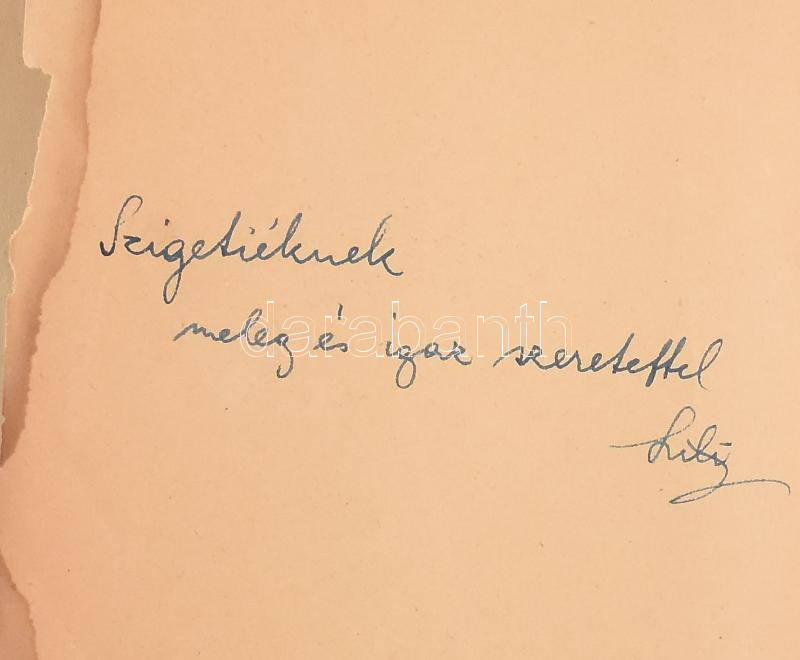 Szigetiéknek
meleg és igaz szeretettel
darabanth